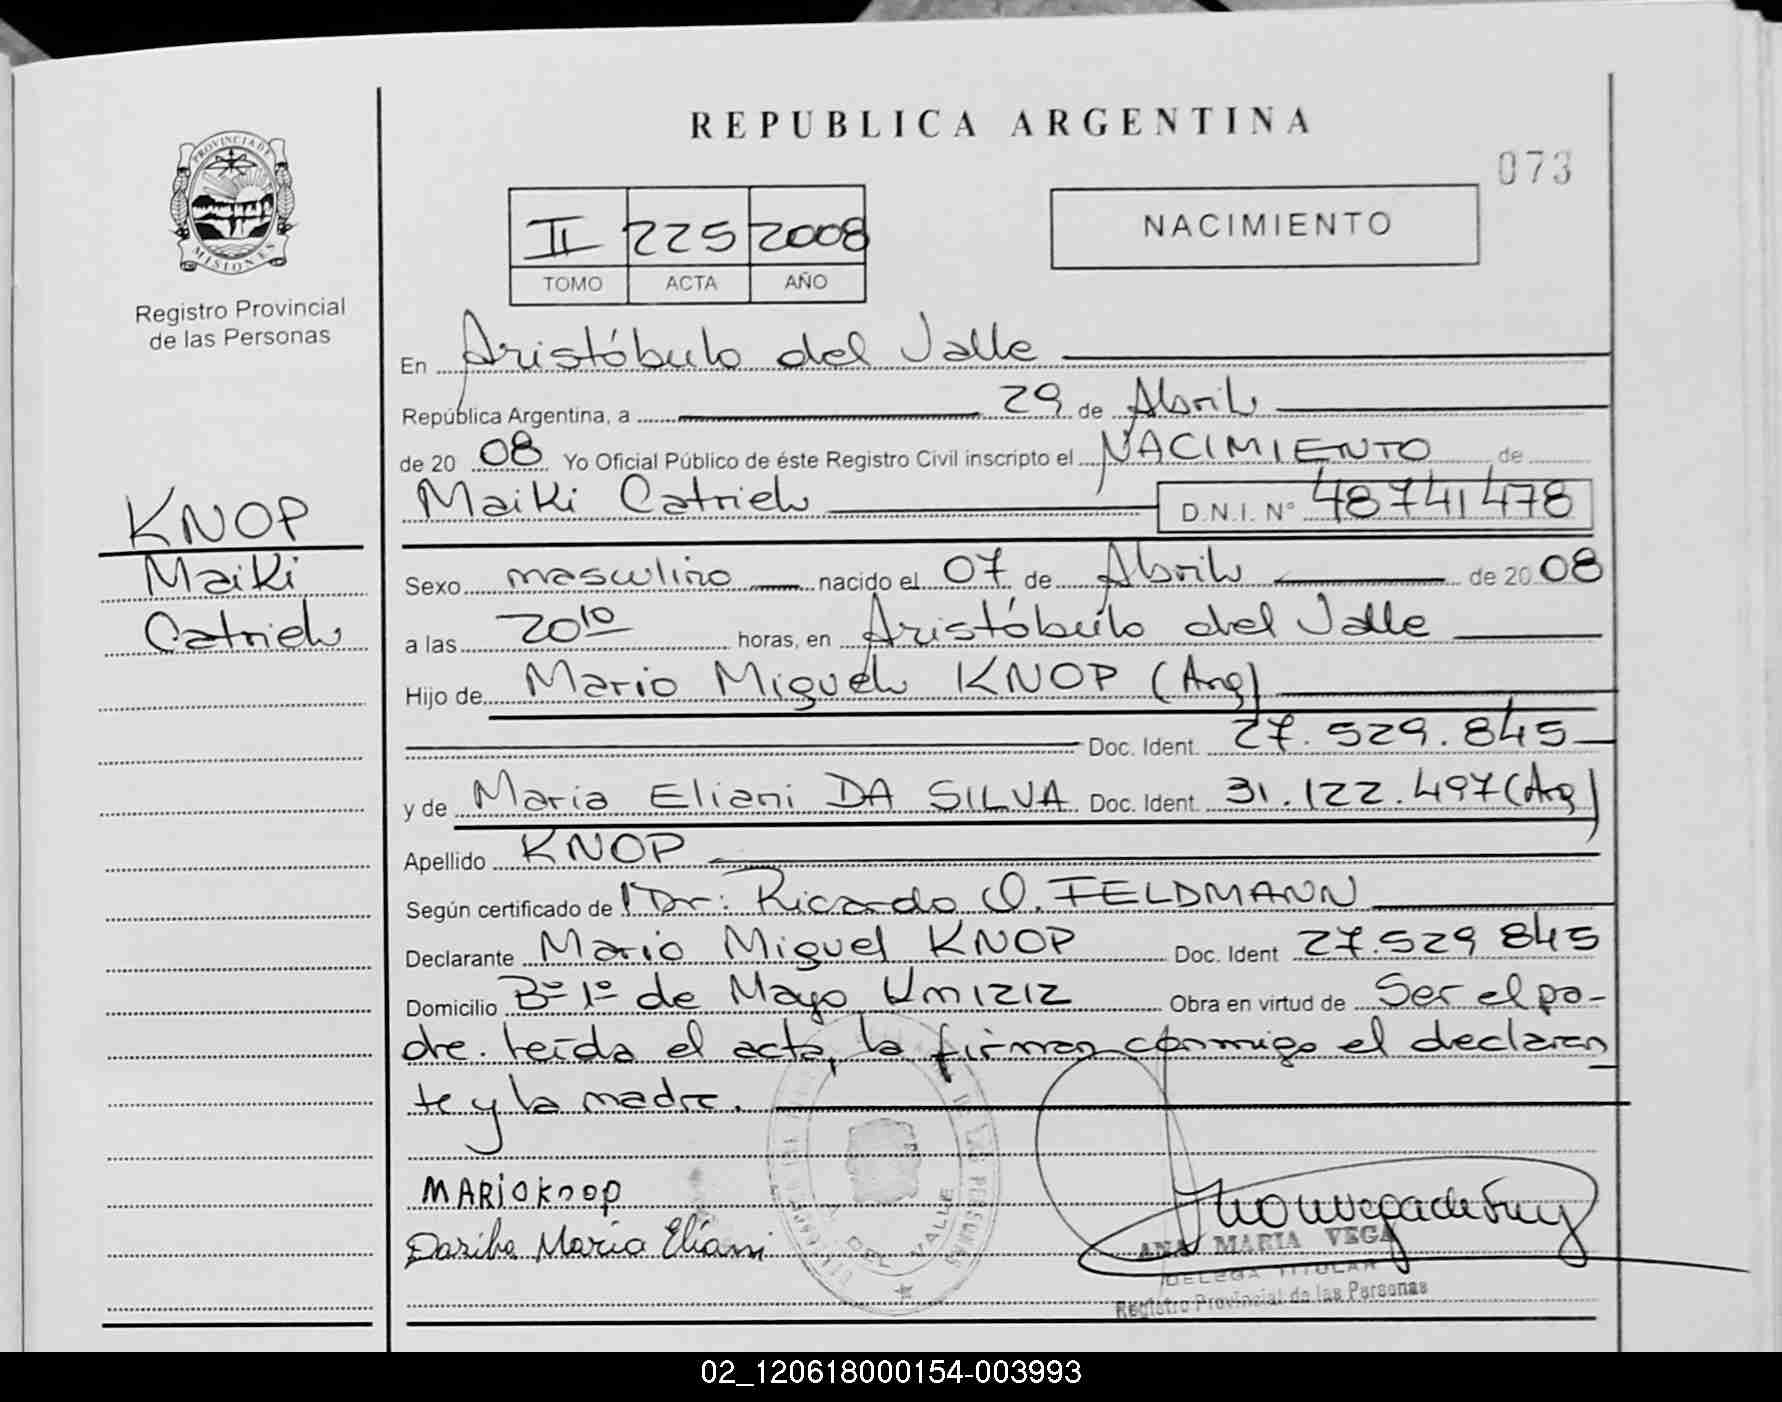 REPUBLICA ARGENTINA
073
PROVINCIA DE
MISIONES
Registro Provincial
de las Personas
II 225 2008
TOMO ACTA AÑO
NACIMIENTO
En Aristóbulo del Valle
República Argentina, a 29 de Abril
de 20 08 Yo Oficial Público de éste Registro Civil inscripto el NACIMIENTO de
Maiki Catriel D.N.I. N° 48741478
KNOP
Maiki
Catriel
Sexo masculino nacido el 07 de Abril de 20 08
a las 20 10 horas, en Aristóbulo del Valle
Hijo de Mario Miguel KNOP (Arg)
Doc. Ident. 27.529.845
y de Maria Eliani DA SILVA Doc. Ident. 31.122.497 (Arg)
Apellido KNOP
Según certificado de Dr: Ricardo O. FELDMANN
Declarante Mario Miguel KNOP Doc. Ident 27.529 845
Domicilio B° 1° de Mayo Km 1212 Obra en virtud de Ser el pa-
dre. leída el acta, la firman conmigo el declaran
te y la madre.
MARIO Knop
Dasilva Maria Eliani
DEL VALLE
ANA MARIA VEGA
DELEGA TITULAR
Registro Provincial de las Personas
02_120618000154-003993